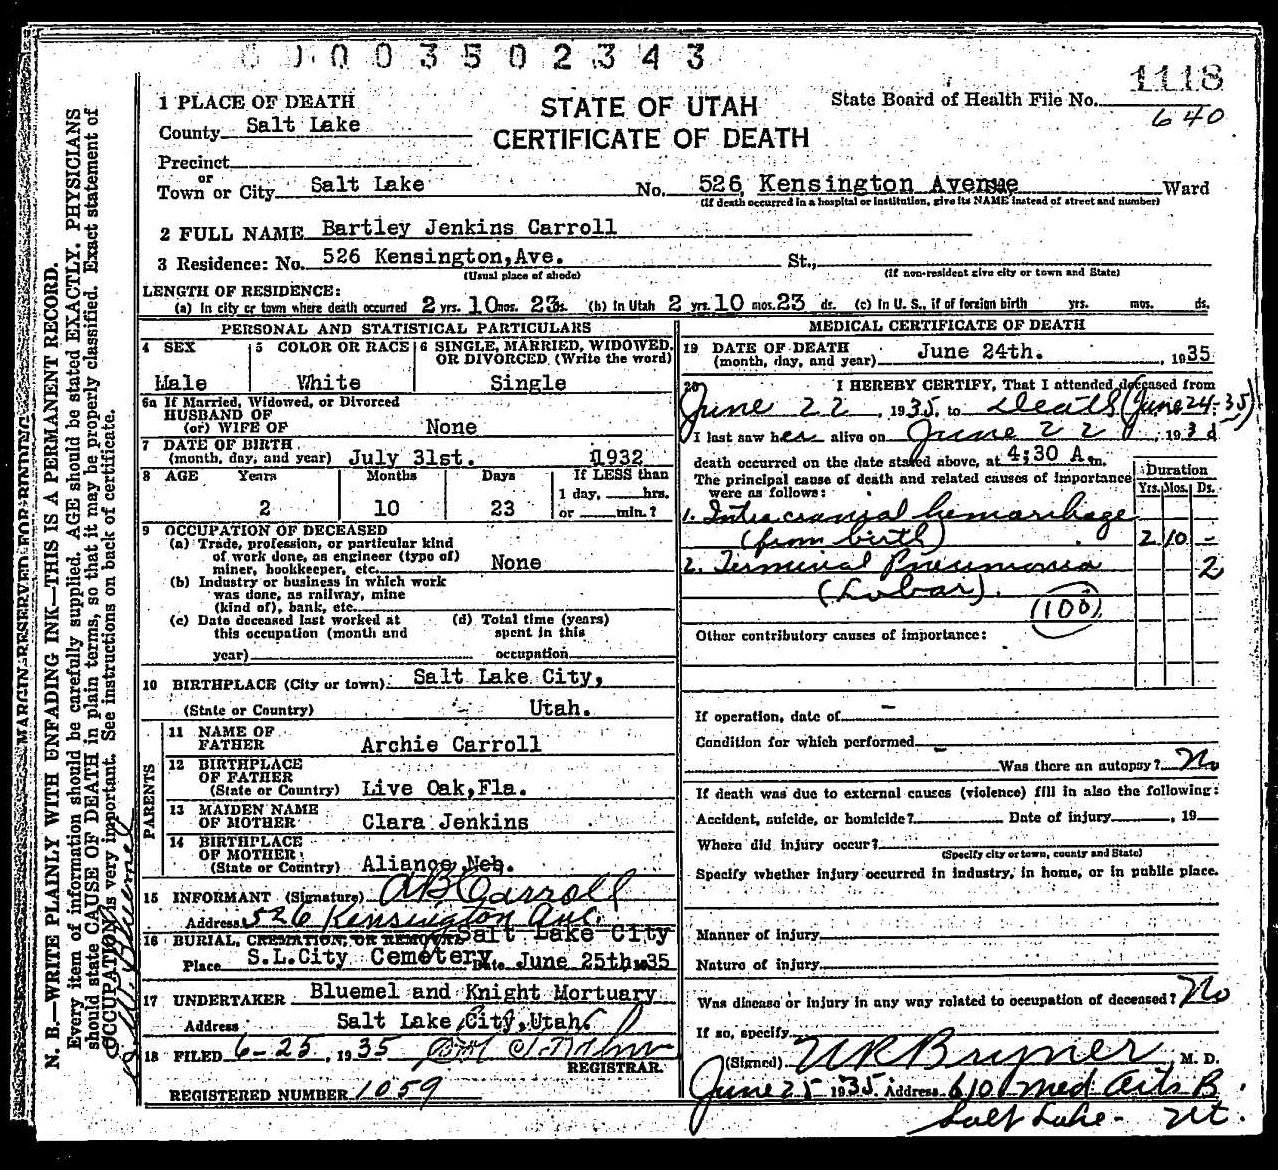 0003502343
1118
640
STATE OF UTAH
CERTIFICATE OF DEATH
State Board of Health File No.
1 PLACE OF DEATH
County Salt Lake
Precinct
or
Town or City Salt Lake No. 526 Kensington Avenue Ward
(If death occurred in a hospital or institution, give its NAME instead of street and number)
2 FULL NAME Bartley Jenkins Carroll
3 Residence: No. 526 Kensington,Ave. St.,
(Usual place of abode) (If non-resident give city or town and State)
LENGTH OF RESIDENCE:
(a) In city or town where death occurred 2 yrs. 10 mos. 23 ds. (b) In Utah 2 yrs. 10 mos. 23 ds. (c) In U. S., if of foreign birth yrs. mos. ds.
PERSONAL AND STATISTICAL PARTICULARS
4 SEX 5 COLOR OR RACE 6 SINGLE, MARRIED, WIDOWED, OR DIVORCED (Write the word)
Male White Single
6a If Married, Widowed, or Divorced
HUSBAND OF
(or) WIFE OF None
7 DATE OF BIRTH
(month, day, and year) July 31st. 1932
8 AGE Years Months Days If LESS than
1 day, hrs.
2 10 23 or min.?
9 OCCUPATION OF DECEASED
(a) Trade, profession, or particular kind
of work done, as engineer (type of)
miner, bookkeeper, etc. None
(b) Industry or business in which work
was done, as railway, mine
(kind of), bank, etc.
(c) Date deceased last worked at
this occupation (month and
year)
(d) Total time (years)
spent in this
occupation
10 BIRTHPLACE (City or town) Salt Lake City,
(State or Country) Utah.
PARENTS
11 NAME OF
FATHER Archie Carroll
12 BIRTHPLACE
OF FATHER
(State or Country) Live Oak,Fla.
13 MAIDEN NAME
OF MOTHER Clara Jenkins
14 BIRTHPLACE
OF MOTHER
(State or Country) Aliance,Neb.
15 INFORMANT (Signature) AB Carroll
Address 526 Kensington Ave.
16 BURIAL, CREMATION, OR REMOVAL Salt Lake City
Place S.L.City Cemetery Date June 25th, 1935
17 UNDERTAKER Bluemel and Knight Mortuary
Address Salt Lake City,Utah.
18 FILED 6-25, 1935
REGISTRAR.
REGISTERED NUMBER 1059
MEDICAL CERTIFICATE OF DEATH
19 DATE OF DEATH
(month, day, and year) June 24th. , 1935
20 I HEREBY CERTIFY, That I attended deceased from
June 22, 1935, to Death (June 24-35)
I last saw h alive on June 22, 193
death occurred on the date stated above, at 4;30 A.m.
The principal cause of death and related causes of importance
were as follows:
Duration
Yrs. Mos. Ds.
1. Intracranial hemorrhage
(from birth) 2 10 -
2. Terminal Pneumonia 2
(Lobar).
(108)
Other contributory causes of importance:
If operation, date of -
Condition for which performed -
Was there an autopsy? No
If death was due to external causes (violence) fill in also the following:
Accident, suicide, or homicide? Date of injury , 19
Where did injury occur?
(Specify city or town, county and State)
Specify whether injury occurred in industry, in home, or in public place.
Manner of injury
Nature of injury
Was disease or injury in any way related to occupation of deceased? No
If so, specify
(Signed) Bryner, M. D.
June 25 1935. Address 610 Med Arts B.
Salt Lake - Ut.
MARGIN RESERVED FOR BINDING
N. B.—WRITE PLAINLY WITH UNFADING INK—THIS IS A PERMANENT RECORD.
Every item of information should be carefully supplied. AGE should be stated EXACTLY. PHYSICIANS
should state CAUSE OF DEATH in plain terms, so that it may be properly classified. Exact statement of
OCCUPATION is very important. See instructions on back of certificate.